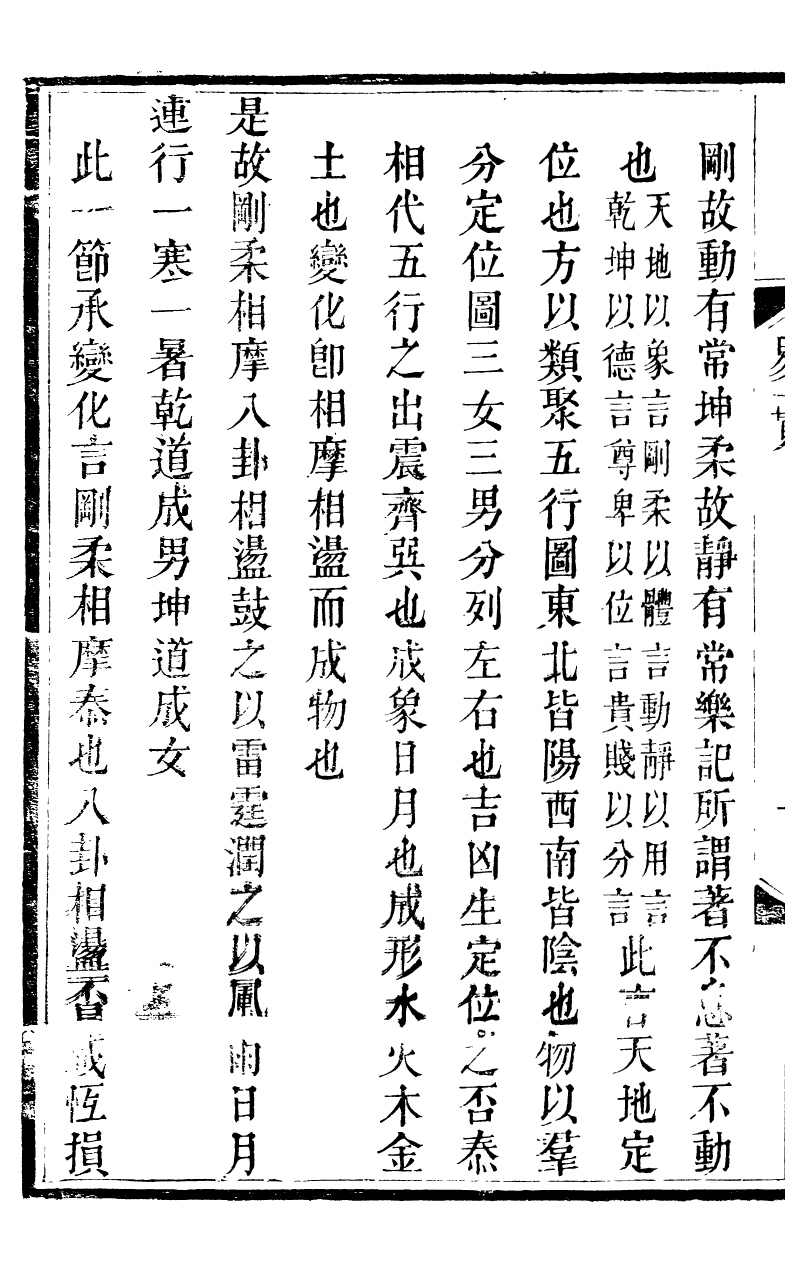 剛故動有常坤柔故靜有常樂記所謂著不息著不動
也天地以象言剛柔以體言動靜以用言
乾坤以德言尊卑以位言貴賤以分言此言天地定
位也方以類聚五行圖東北皆陽西南皆陰也物以羣
分定位圖三女三男分列左右也吉凶生定位之否泰
相代五行之出震齊巽也成象日月也成形水火木金
土也變化卽相摩相盪而成物也
是故剛柔相摩八卦相盪鼓之以雷霆潤之以風雨日月
連行一寒一暑乾道成男坤道成女
此一節承變化言剛柔相摩泰也八卦相盪否咸恆損